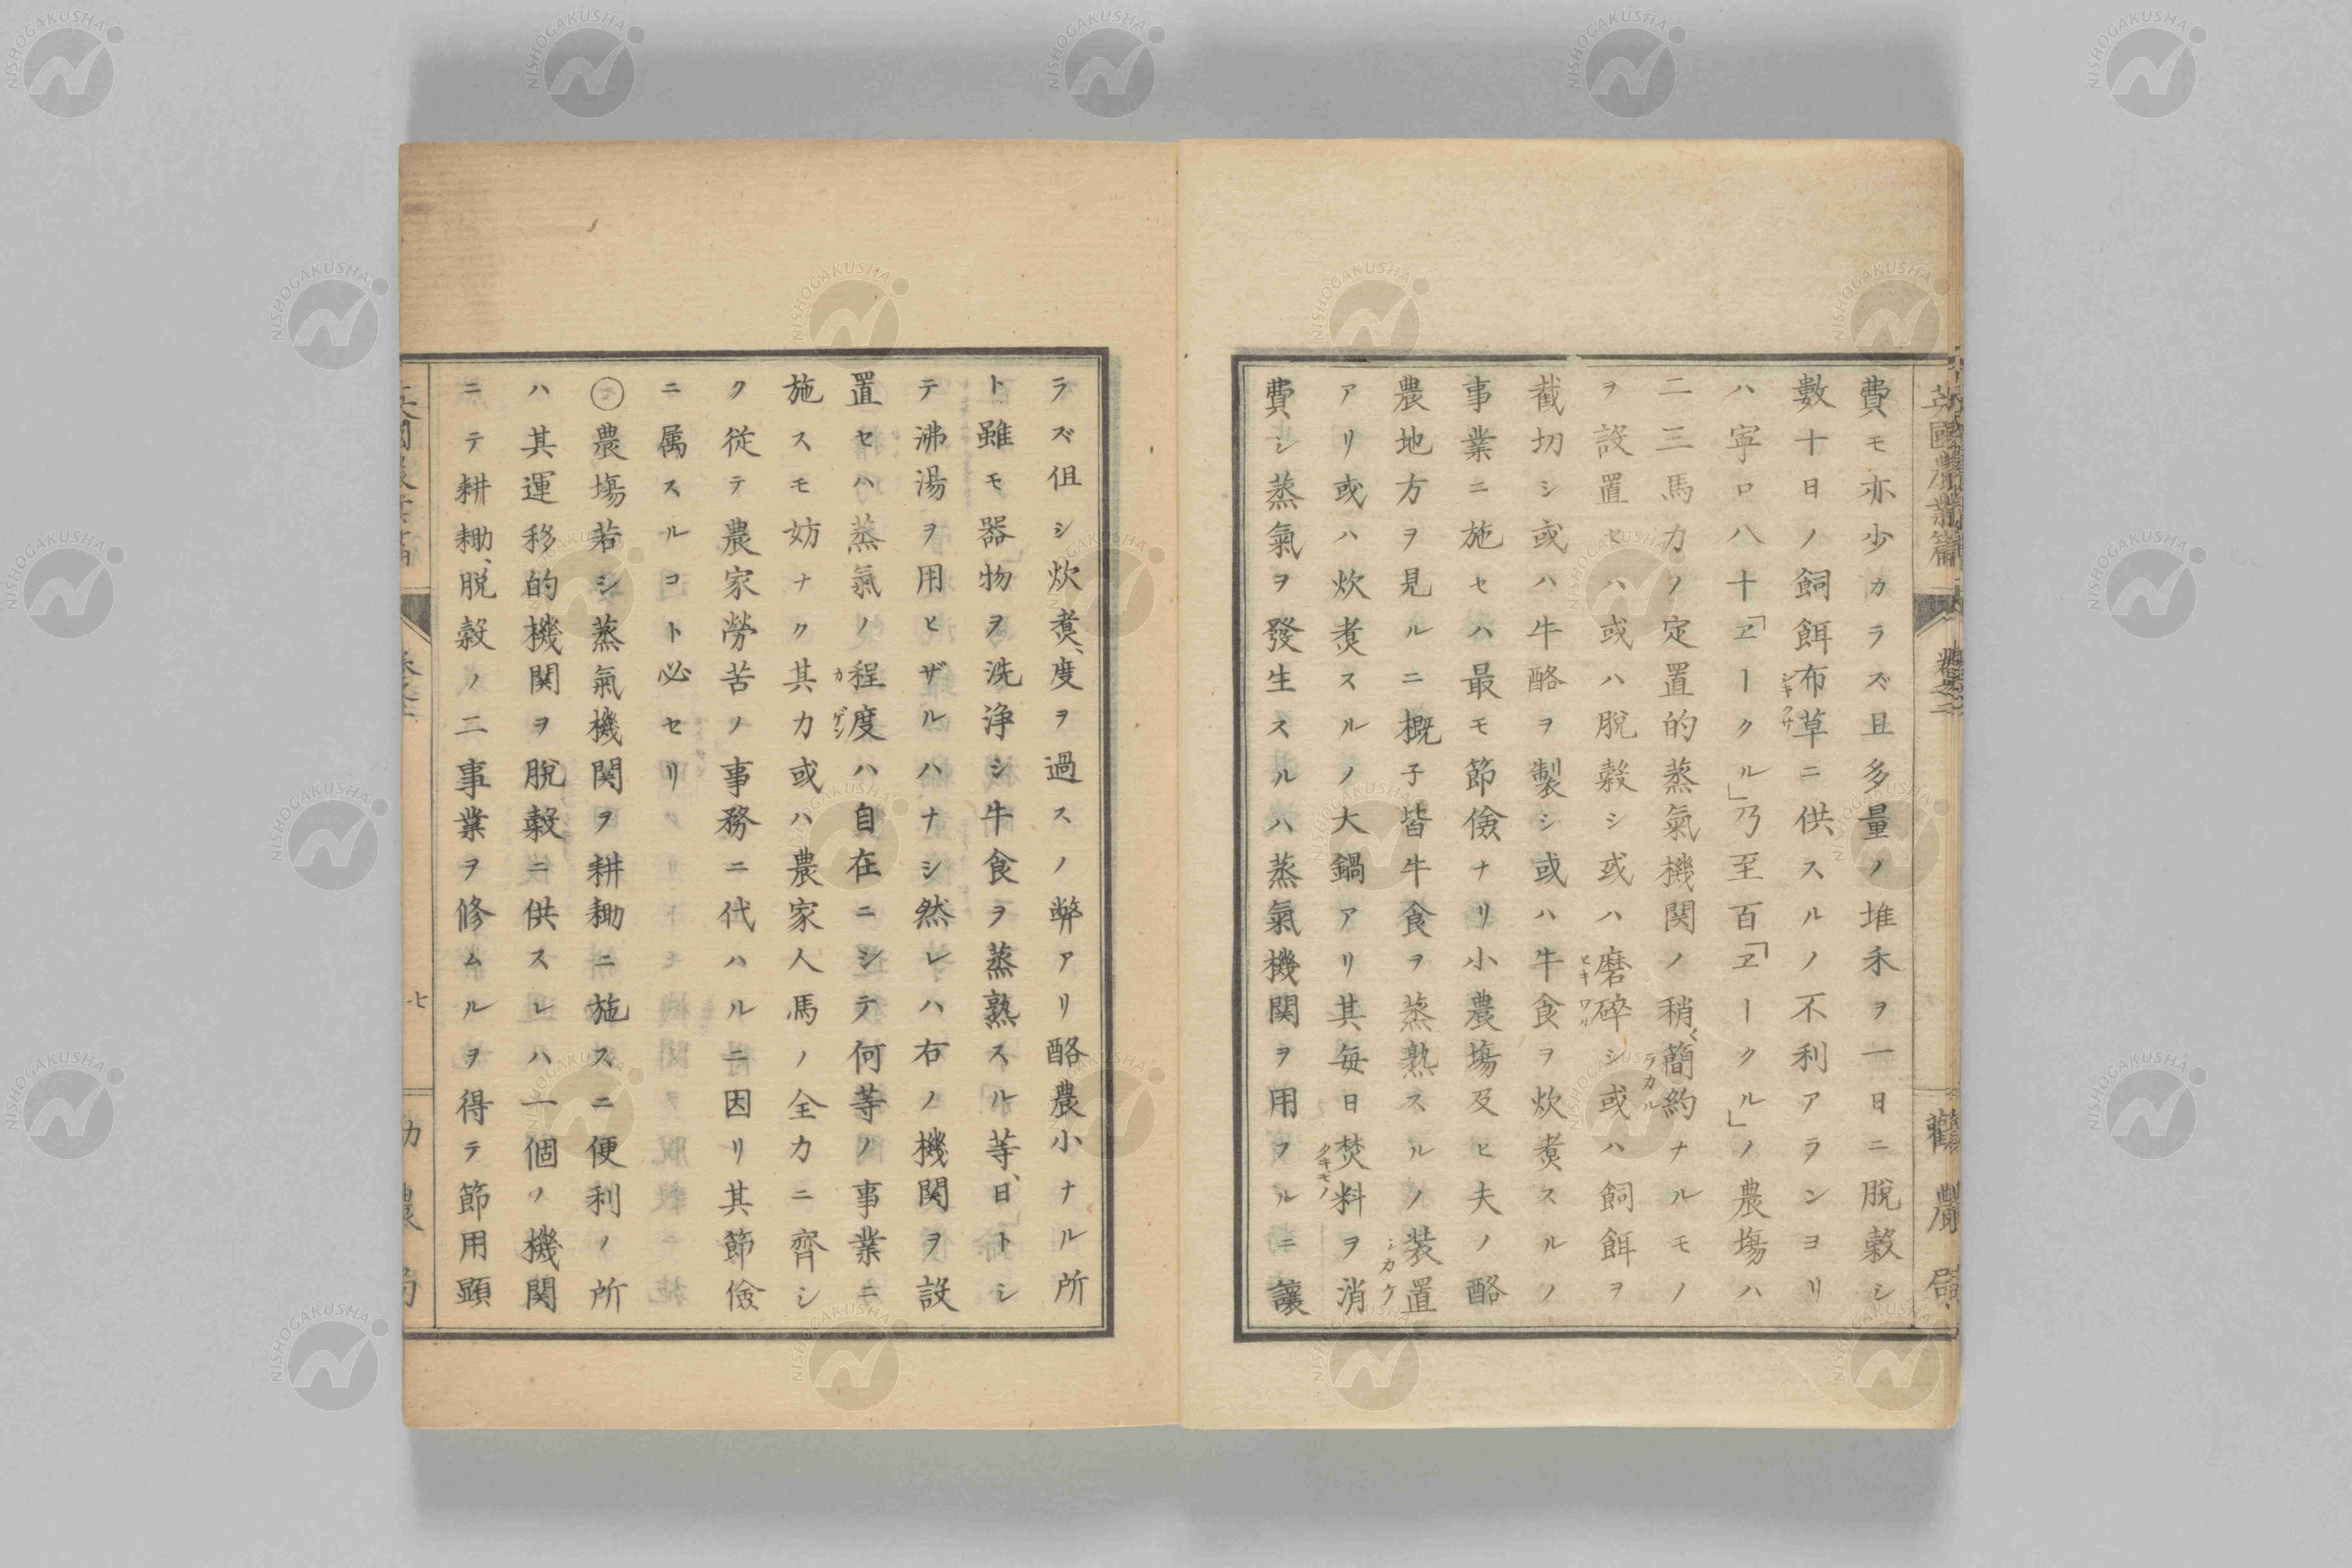 英國農業篇 卷之二 勸農局
費モ亦少カラズ且多量ノ堆禾ヲ一日ニ脱穀シ
數十日ノ飼餌布草ニ供スルノ不利アランヨリ
シキクサ
ハ寧ロ八十「ヱークル」乃至百「ヱークル」ノ農塲ハ
二三馬力ノ定置的蒸氣機関ノ稍〻簡約ナルモノ
ヲ設置セハ或ハ脱穀シ或ハ磨碎シ或ハ飼餌ヲ
ヒキワリ
截切シ或ハ牛酪ヲ製シ或ハ牛食ヲ炊煑スルノ
事業ニ施セハ最モ節儉ナリ小農塲及ヒ夫ノ酪
農地方ヲ見ルニ概子皆牛食ヲ蒸熟スルノ装置
シカケ
アリ或ハ炊煑スルノ大鍋アリ其每日焚料ヲ消
タキモノ
費シ蒸氣ヲ發生スルハ蒸氣機関ヲ用フルニ讓
ラズ伹シ炊煑、度ヲ過スノ弊アリ酪農小ナル所
ト雖モ器物ヲ洗浄シ牛食ヲ蒸熟スル等、日トシ
テ沸湯ヲ用ヒザルハナシ然レハ右ノ機関ヲ設
置セハ蒸氣ノ程度ハ自在ニシテ何等ノ事業ニ
カゲン
施スモ妨ナク其力或ハ農家人馬ノ全力ニ齊シ
ク従テ農家勞苦ノ事務ニ代ハルニ因リ其節儉
ニ属スルコト必セリ
〇農塲若シ蒸氣機関ヲ耕耡ニ施スニ便利ノ所
ハ其運移的機関ヲ脱穀ニ供スレハ一個ノ機関
ニテ耕耡、脱穀ノ二事業ヲ修ムルヲ得テ節用顕
七
NISHOGAKUSHA